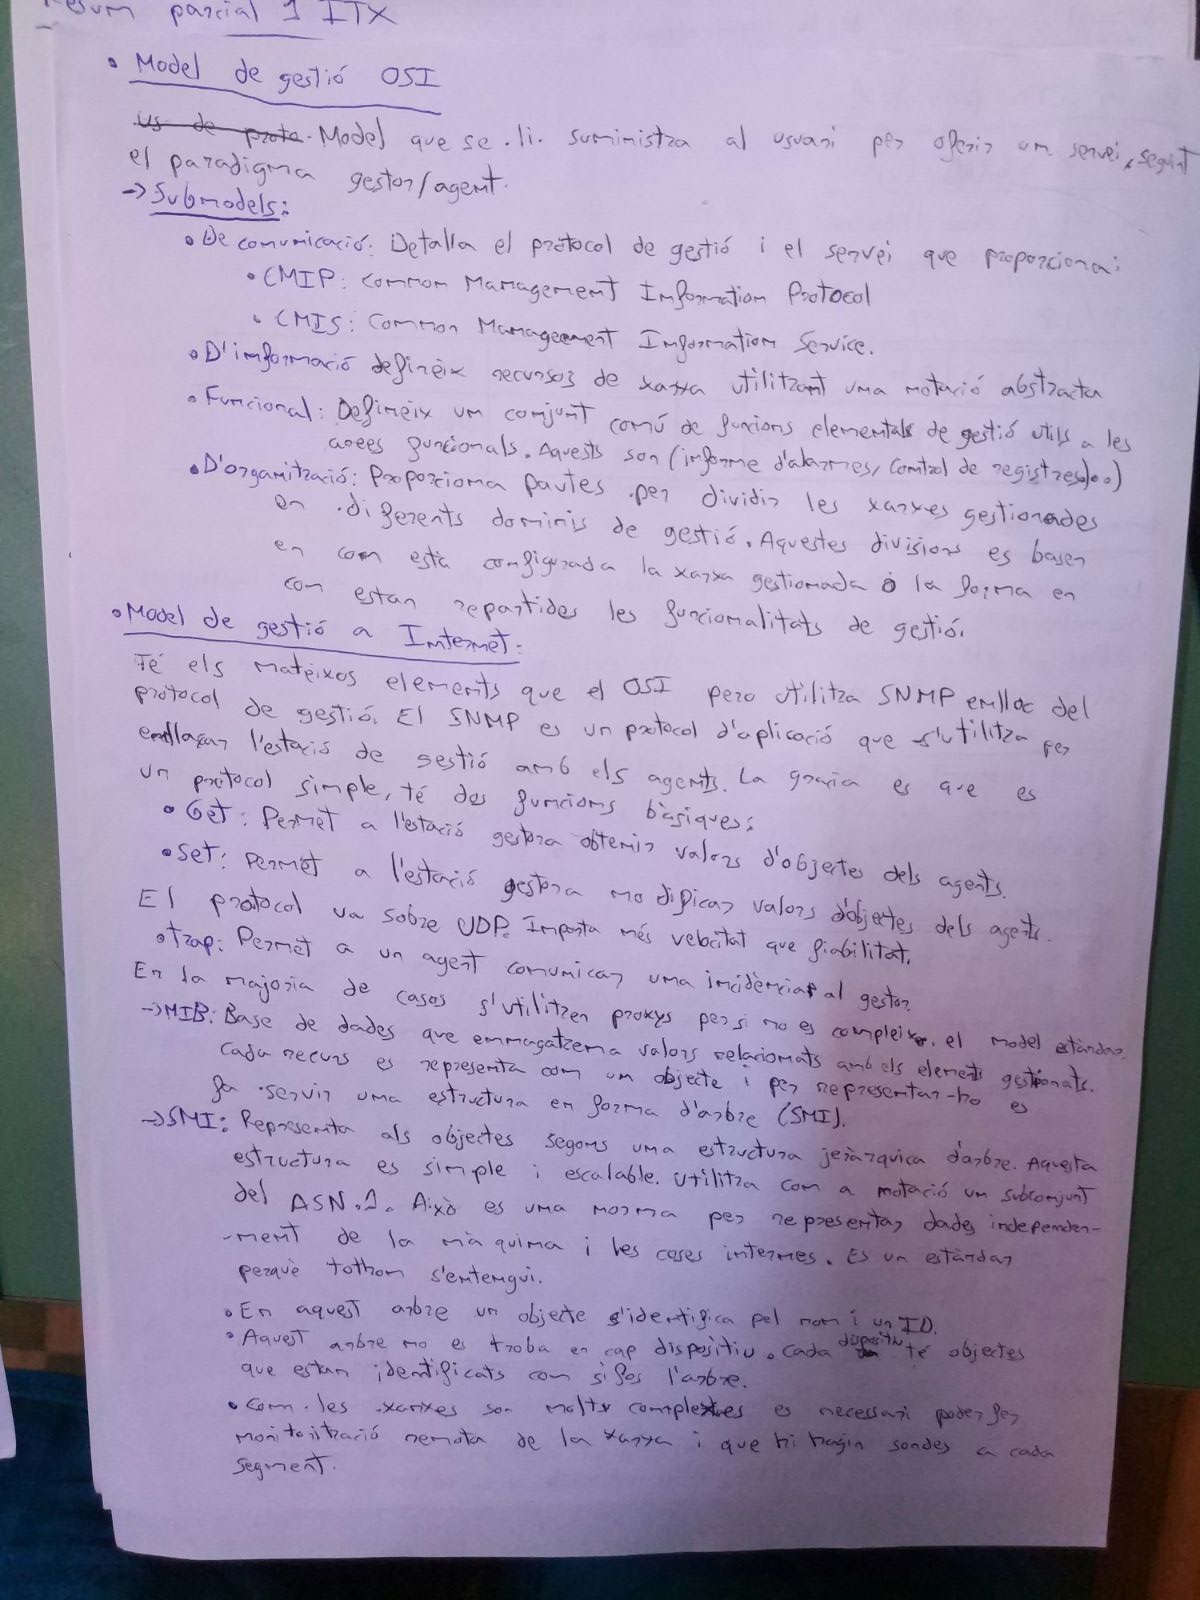 Resum parcial 1 ITX
• Model de gestió OSI
Us de proto. Model que se li suministra al usuari per oferir un servei, seguint
el paradigma gestor/agent.
-> Submodels:
• De comunicació: Detalla el protocol de gestió i el servei que proporciona:
• CMIP: Common Management Information Protocol
• CMIS: Common Management Information Service.
• D'informació defineix recursos de xarxa utilitzant una notació abstracta
• Funcional: Defineix un conjunt comú de funcions elementals de gestió utils a les
arees funcionals. Aquests son (informe d'alarmes, control de registres,...)
• D'organització: Proporciona pautes per dividir les xarxes gestionades
en diferents dominis de gestió. Aquestes divisions es basen
en com està configurada la xarxa gestionada o la forma en
com estan repartides les funcionalitats de gestió.
• Model de gestió a Internet:
Té els mateixos elements que el OSI pero utilitza SNMP enlloc del
protocol de gestió. El SNMP es un protocol d'aplicació que s'utilitza per
enllaçar l'estació de gestió amb els agents. La gracia es que es
un protocol simple, té des funcions bàsiques:
• Get: Permet a l'estació gestora obtenir valors d'objectes dels agents.
• Set: Permet a l'estació gestora modificar valors d'objectes dels agents.
El protocol va sobre UDP. Importa més velocitat que fiabilitat.
• Trap: Permet a un agent comunicar una incidència al gestor.
En la majoria de casos s'utilitzen proxys per si no es compleix el model estàndar.
-> MIB: Base de dades que emmagatzema valors relacionats amb els elements gestionats.
Cada recurs es representa com un objecte i per representar-ho es
fa servir una estructura en forma d'arbre (SMI).
-> SMI: Representa als objectes segons una estructura jeràrquica d'arbre. Aquesta
estructura es simple i escalable. Utilitza com a notació un subconjunt
del ASN.1. Això es una norma per representar dades independen-
-ment de la màquina i les coses internes. Es un estàndar
perquè tothom s'entengui.
• En aquest arbre un objecte s'identifica pel nom i un ID.
• Aquest arbre no es troba en cap dispositiu. Cada dispositiu té objectes
que estan identificats com si fos l'arbre.
• Com les xarxes son molts complexes es necessari poder fer
monitorització remota de la xarxa i que hi hagin sondes a cada
segment.